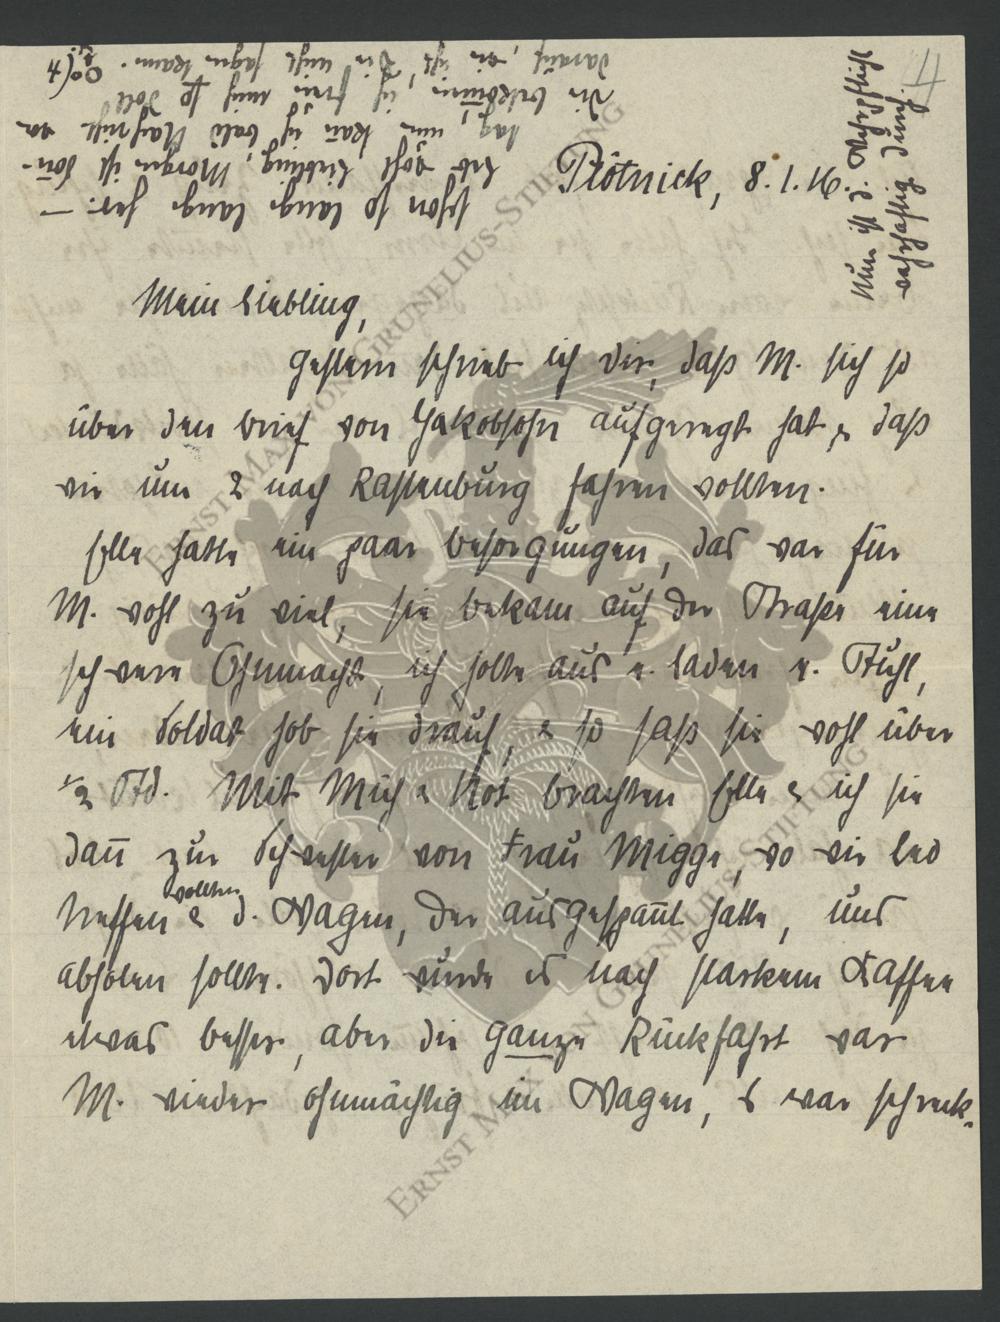 Plötnick, 8.1.16.
Mein Liebling,
gestern schrieb ich dir, daß M. sich so
über den brief von Jakobsohn aufgeregt hat & daß
wir um 2 nach Rastenburg fahren wollten.
Elle hatte ein paar besorgungen, das war für
M. wohl zu viel, sie bekam auf der Straße eine
schwere Ohnmacht, ich holte aus e. laden e. Stuhl,
ein Soldat hob sie drauf, & so saß sie wohl über
1/2 Std. Mit Müh & Not brachten Elle & ich sie
dañ zur Schwester von Frau Migge, wo wir Leo
treffen wollten & d. Wagen, der ausgespañt hatte, uns
abholen sollte. Dort wurde es nach starkem Kaffee
etwas besser, aber die ganze Rückfahrt war
M. wieder ohnmächtig im Wagen, s war schreck.
schon so lange lange her. —
Leb wohl Liebling, Morgen ist Soñ-
tag, nun kañ ich bald Nachricht von
dir bekom̄en, ich freu mich so doll
darauf, wie ich's dir nicht sagen kann.
Nun ist d. Wehrpflicht
wahrhaftig durch.
4
ERNST MAX VON GRUNELIUS-STIFTUNG
ERNST MAX VON GRUNELIUS-STIFTUNG